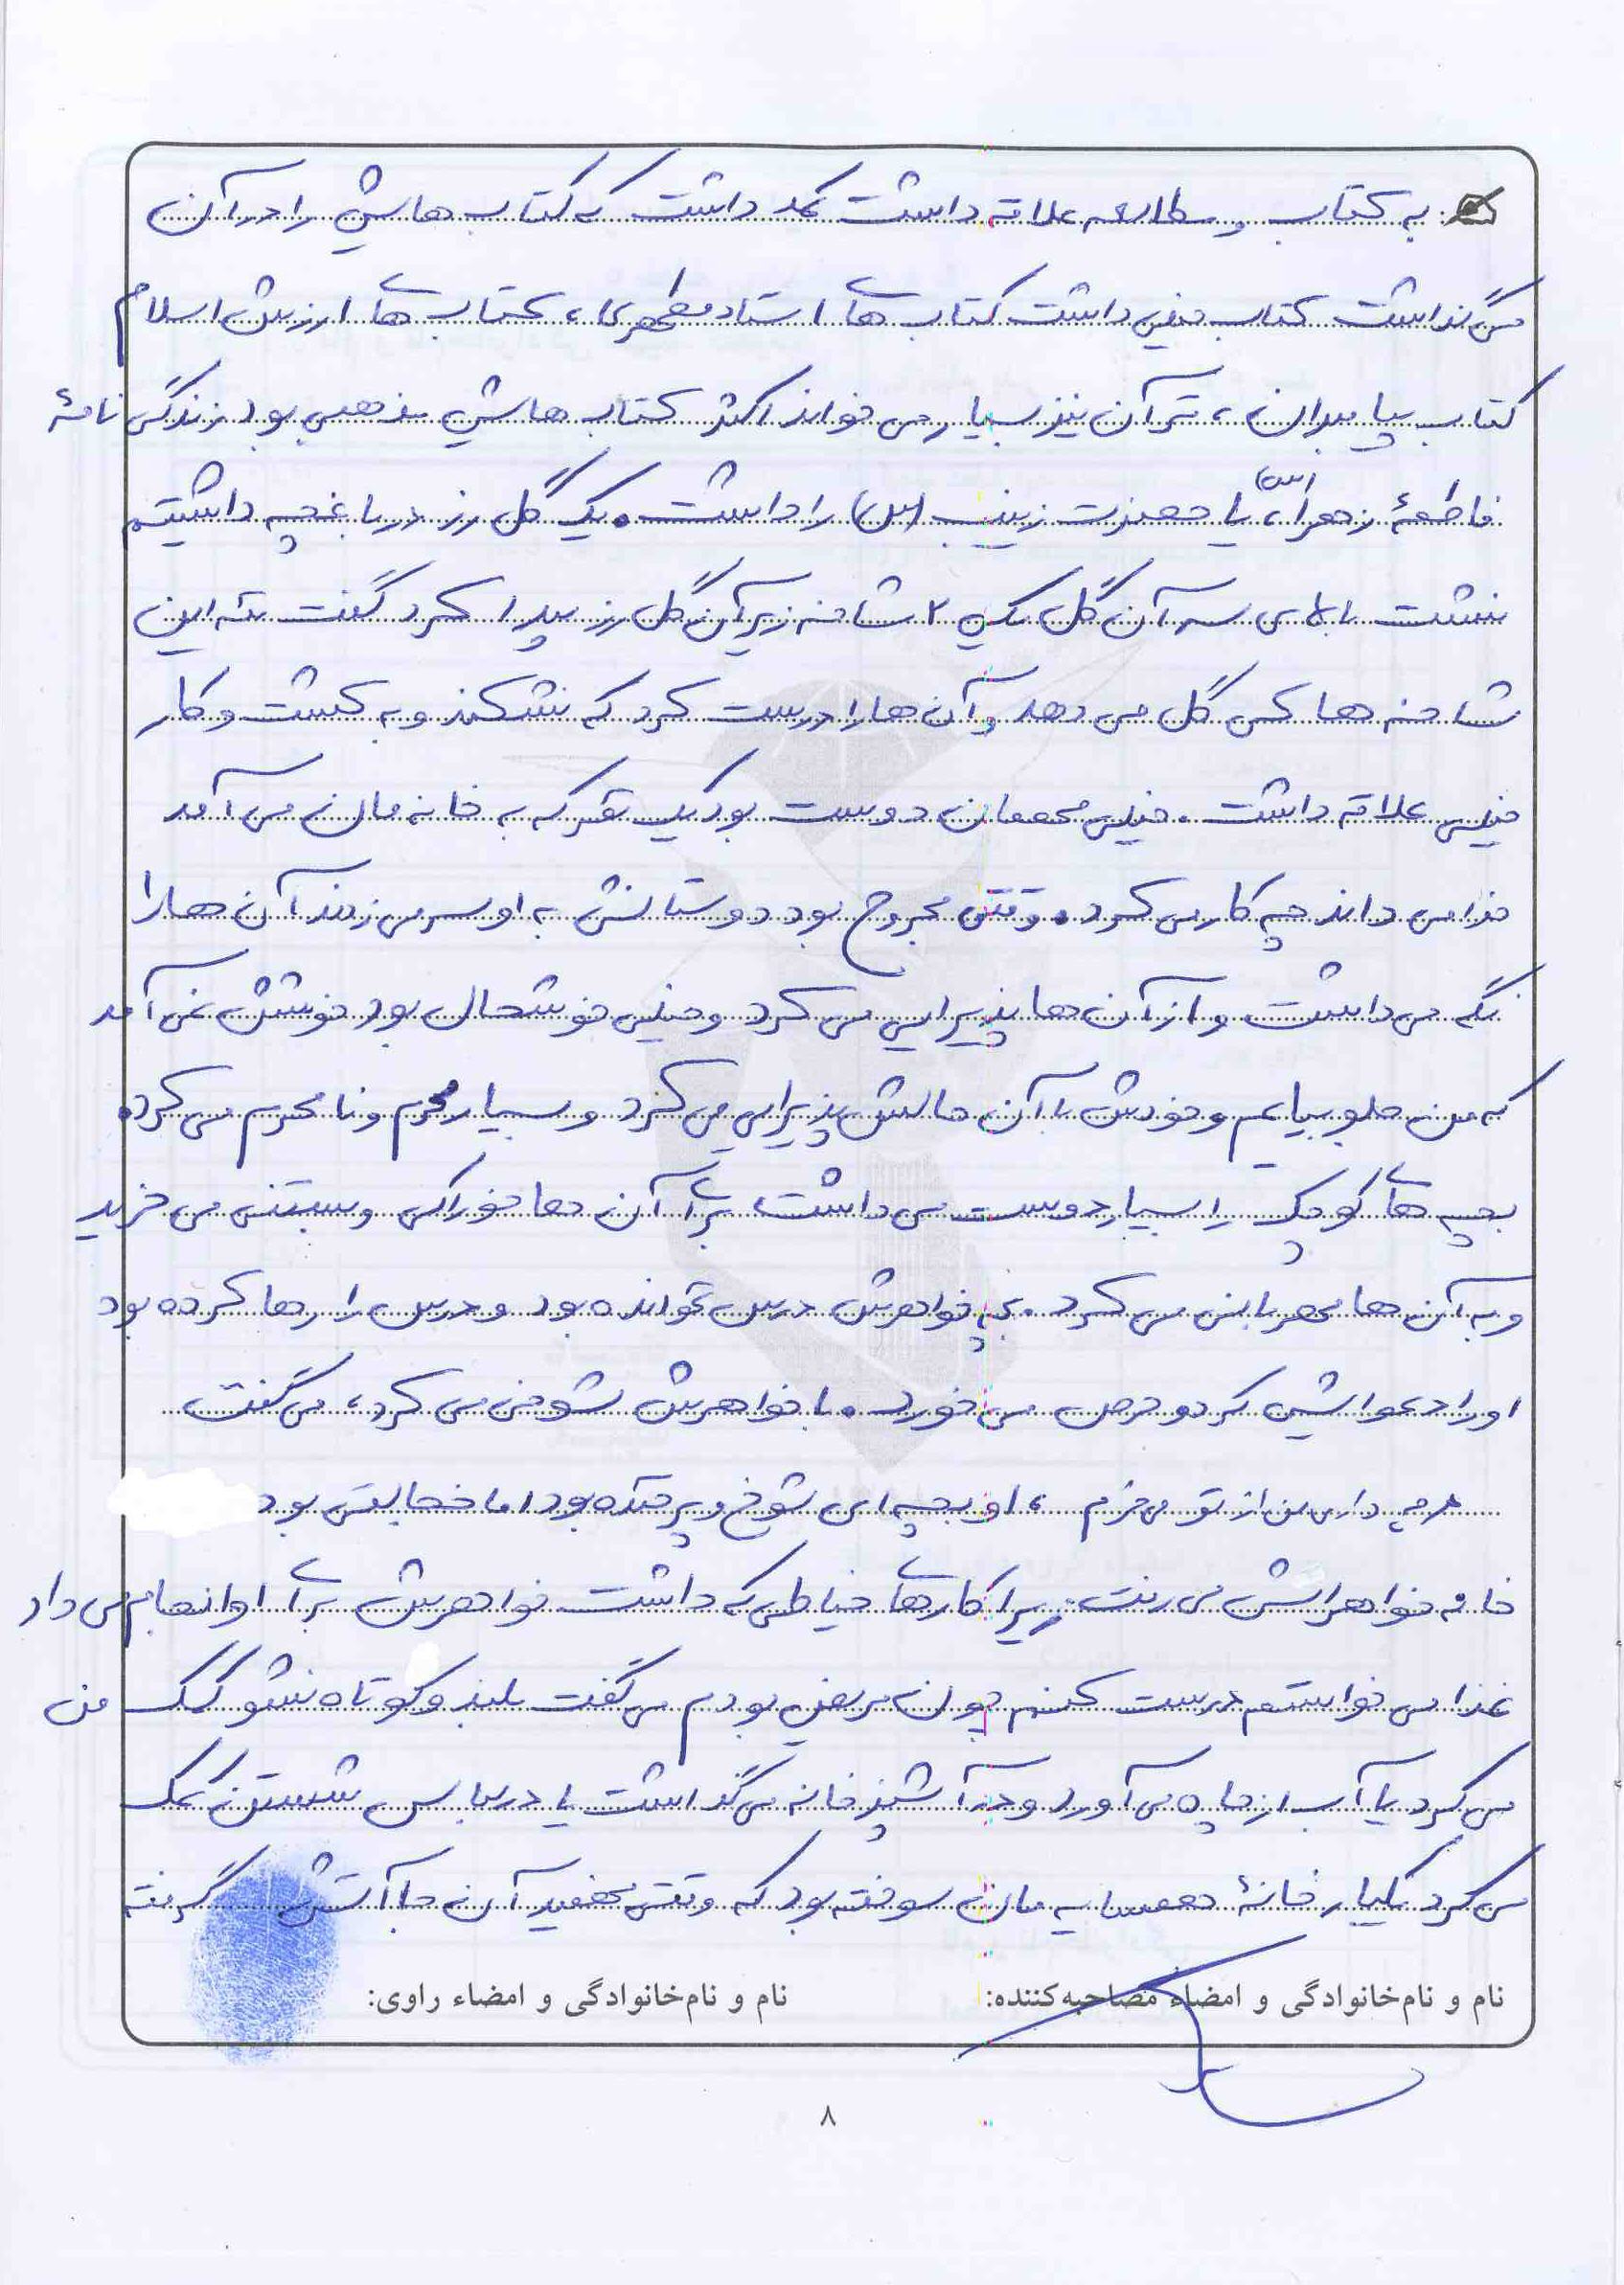 به کتاب و مطالعه علاقه داشت کمد داشت که کتاب هایش را در آن
می گذاشت کتاب خیلی داشت کتاب های استاد مطهری، کتاب های ارزش اسلام
کتاب پیامبران، قرآن نیز بسیار می خواند اکثر کتاب هایش مذهبی بود زندگی نامۀ
فاطمۀ زهرا (س)، یا حضرت زینب (س) را داشت. یک گل رز در باغچه داشتیم
نشست بالای سر آن گل یک 2 شاخه زیر آن گل رز پیدا کرد گفت ننه این
شاخه ها کی گل می دهد و آن ها را درست کرد که نشکند و به کشت و کار
خیلی علاقه داشت. خیلی مهمان دوست بود یک نفر که به خانه مان می آمد
خدا می داند چه کار می کرد. وقتی مجروح بود دوستانش به او سر می زدند آن ها را
نگه می داشت و از آن ها پذیرایی می کرد و خیلی خوشحال بود خوشش نمی آمد
که من جلو بیایم و خودش با آن حالش پذیرایی می کرد و بسیار محرم و نامحرم می کرد.
بچه های کوچک را بسیار دوست می داشت، برای آن ها خوراکی و بستنی می خرید
و به آن ها مهربانی می کرد. بچه خواهرش درس نخوانده بود و درس را رها کرده بود
او را دعوایش کرد و حرص می خورد. با خواهرش شوخی می کرد، می گفت
هر چه داری من از تو می خرم، او بچه ای شوخ و پر خنده بود اما خجالتی بود
خانه خواهرانش می رفت زیرا کارهای خیاطی که داشت خواهرش برای او انجام می داد
غذا می خواستم درست کنم چون مریض بودم می گفت بلند و کوتاه نشو کمک من
می کرد یا آب از چاه می آورد و در آشپزخانه می گذاشت یا در لباس شستن کمک
می کرد یکبار خانۀ همسایه مان سوخته بود که وقتی فهمید آن جا آتش گرفته
نام و نام‌خانوادگی و امضاء مصاحبه‌کننده:
نام و نام‌خانوادگی و امضاء راوی:
۸